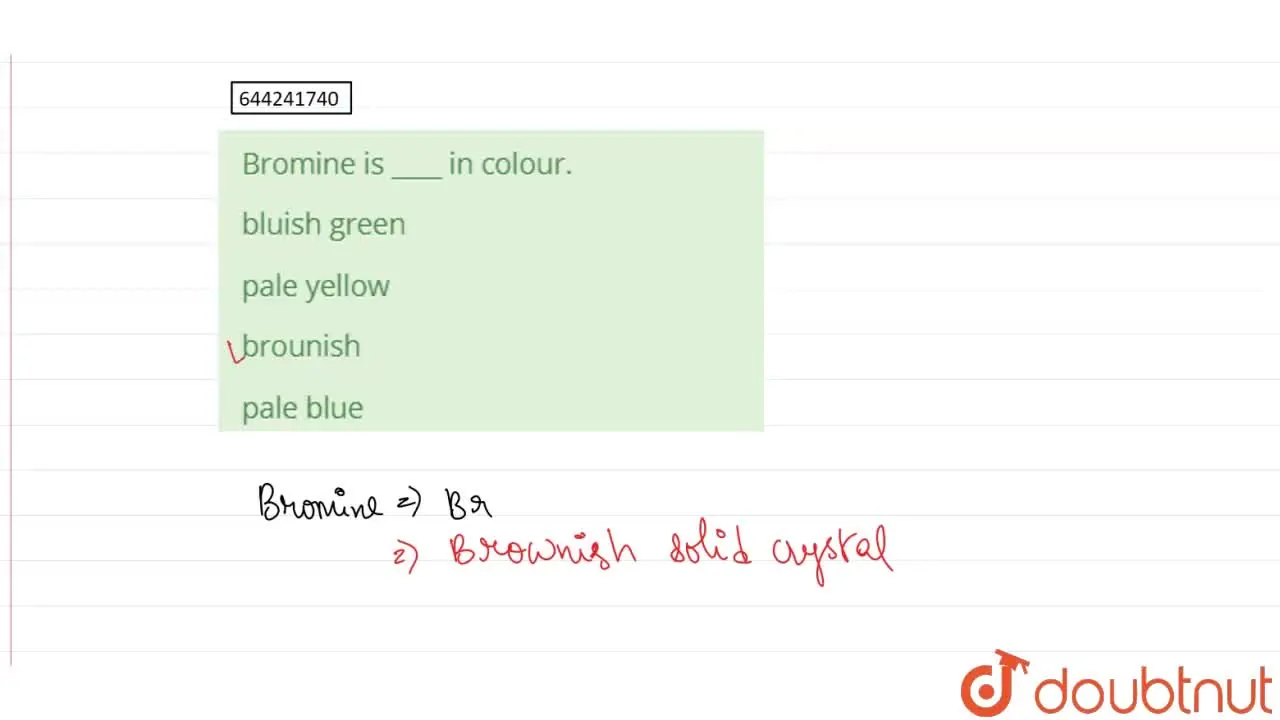 644241740
Bromine is ____ in colour.
bluish green
pale yellow
brounish
pale blue
Bromine => Br
=> Brownish solid crystal
doubtnut